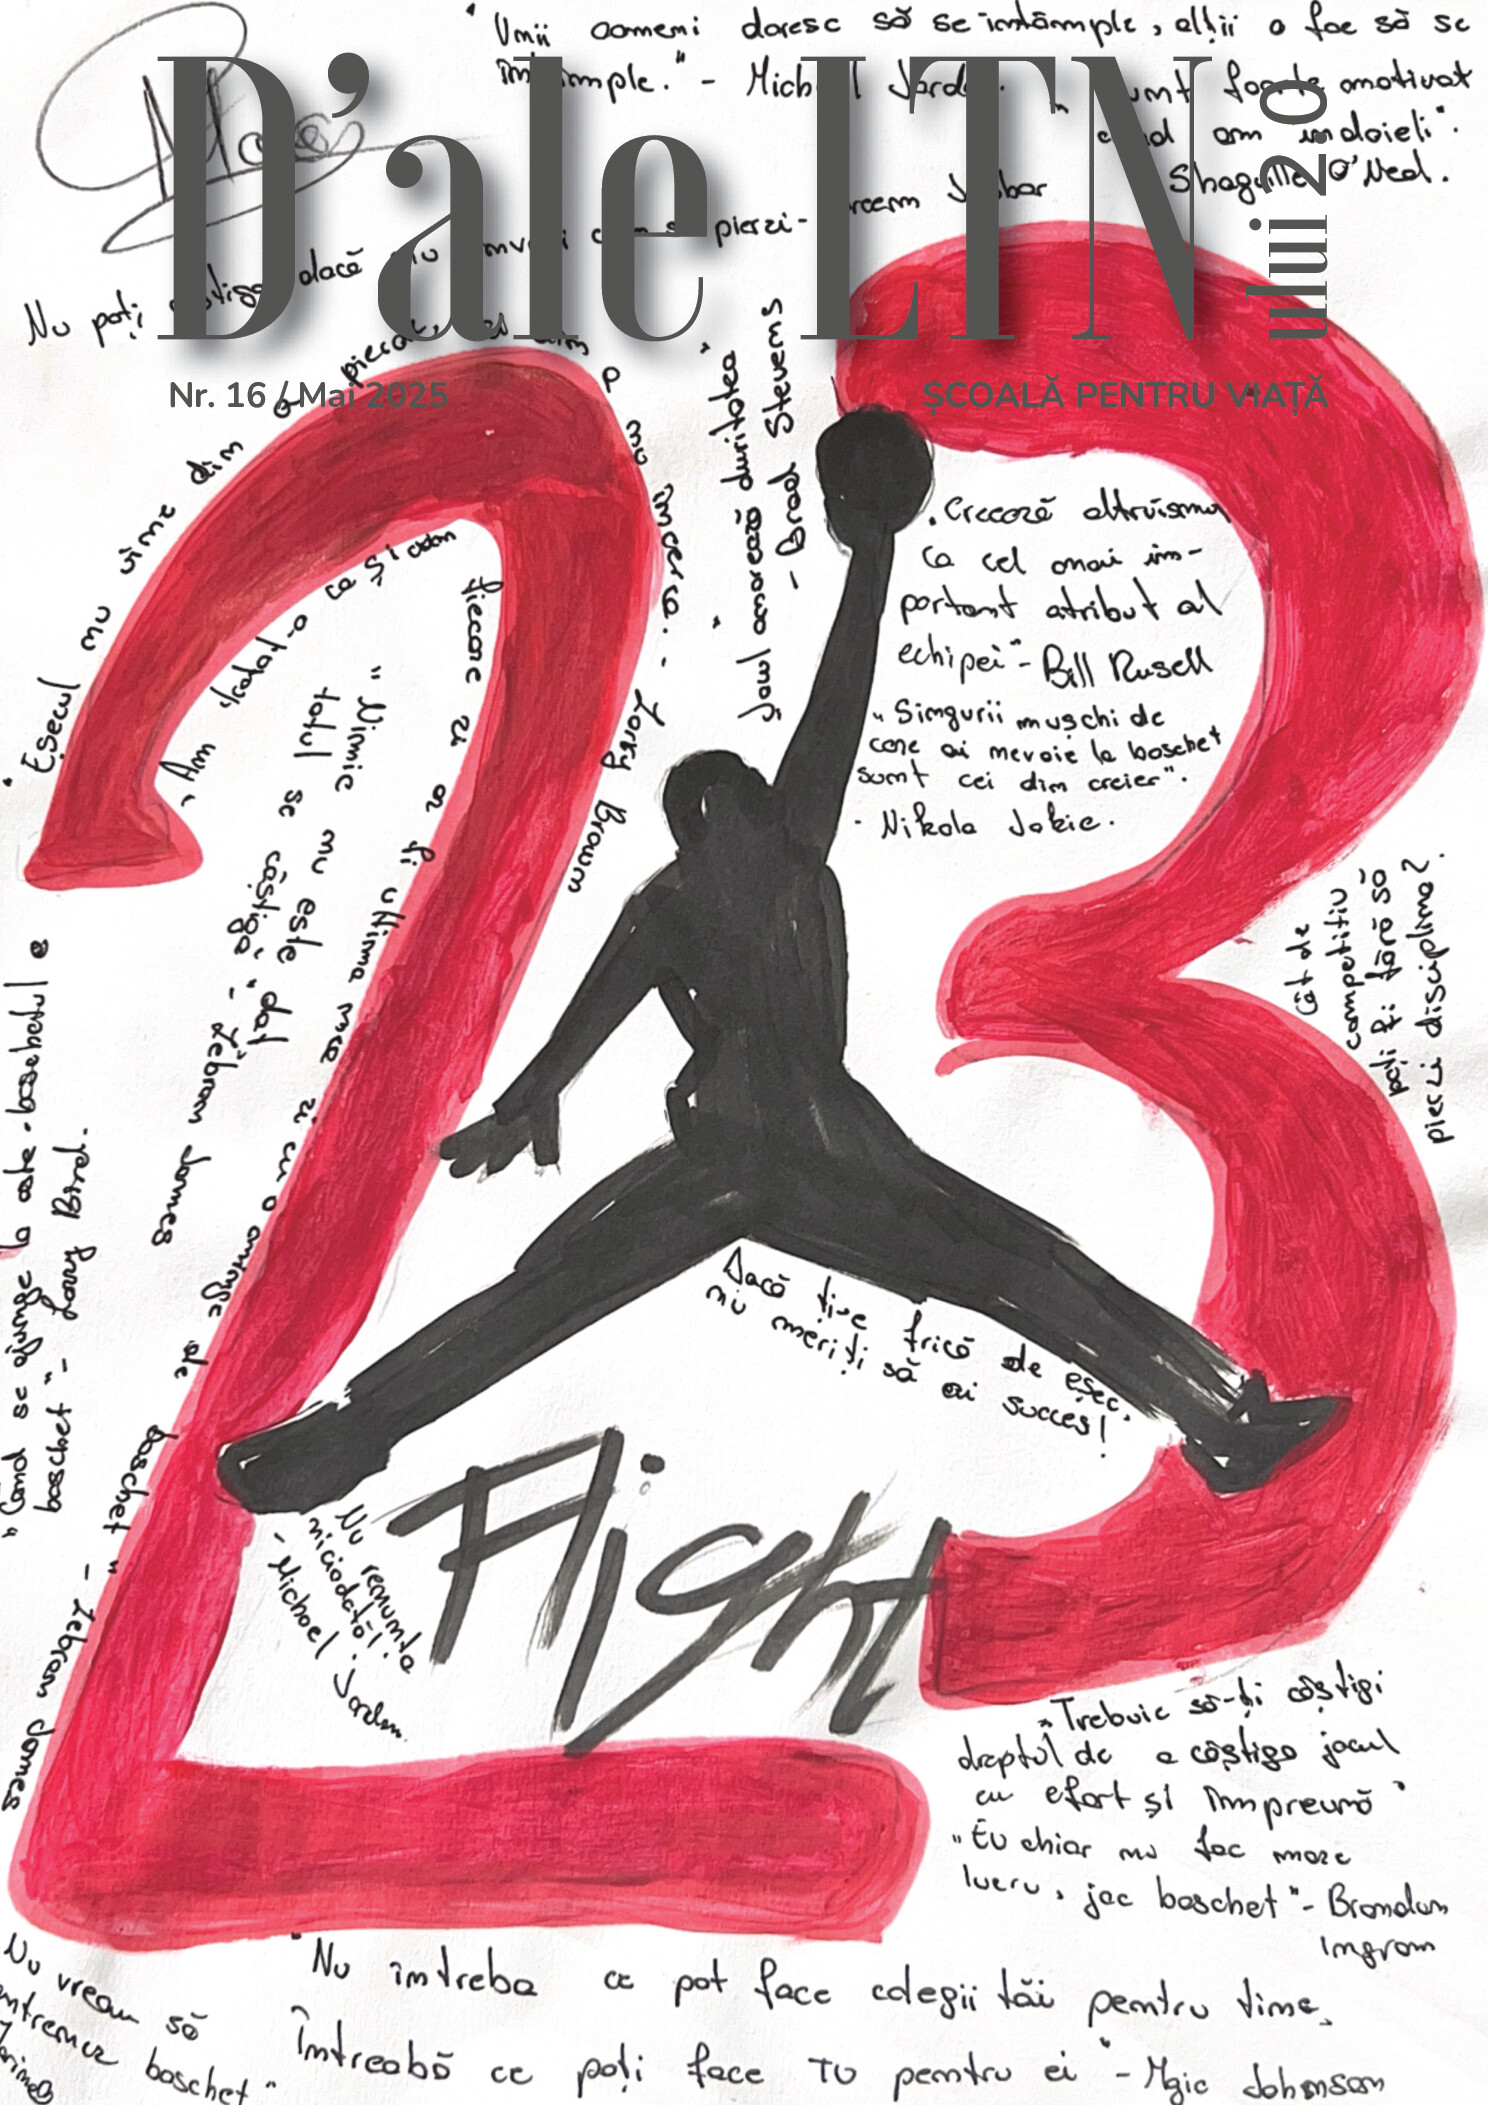 "Unii oameni doresc să se întâmple, alții o fac să se
întâmple." - Michael Jordan. "Sunt foarte motivat
când am îndoieli".
Shaquille O'Neal.
D'ale LTN
ului 2.0
Nr. 16 / Mai 2025
ȘCOALĂ PENTRU VIAȚĂ
Nu poți câștiga dacă nu înveți cum să pierzi-
Kareem Jabbar
"Eșecul nu vine din a pierde, ci din
a nu încerca. - Larry Brown
"Am jucat-o ca și cum
fiecare zi ar fi ultima mea zi cu o minge de
baschet" - Lebram James
"Nimic nu este dat
totul se câștigă" - Lebram James
"Jocul onorează duritatea"
- Brad Stevens
"Crecază altruismul
ca cel mai im-
portant atribut al
echipei"- Bill Rusell
"Singurii mușchi de
care ai nevoie la baschet
sunt cei din creier".
- Nikola Jokic.
Cât de
competitiv
poți fi fără să
pierzi disciplina?
"Când se ajunge la
baschet" - Larry Bird.
Dacă ți-e frică de eșec,
nu meriți să ai succes!
Flight
Nu renunța
niciodată!
- Michael Jordan.
"Trebuie să-ți câștigi
dreptul de a câștiga jocul
cu efort și împreună"
"Eu chiar nu fac mare
lucru, joc baschet"- Brandon
Ingram
Nu vreau să
antrenez baschet"
"Nu întreba ce pot face colegii tăi pentru tine,
Întreabă ce poți face TU pentru ei" - Mgic Johnson